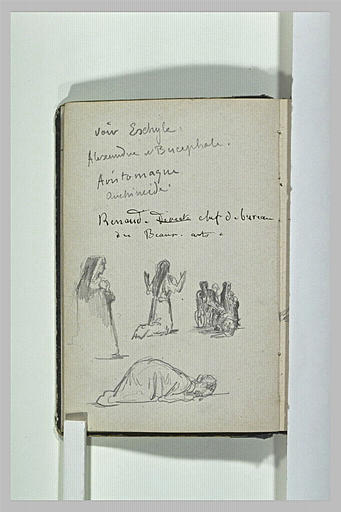 voir Eschyle.
Alexandre et Bucephale.
Aristomaque
Renaud. chef de bureau
des Beaux. arts.